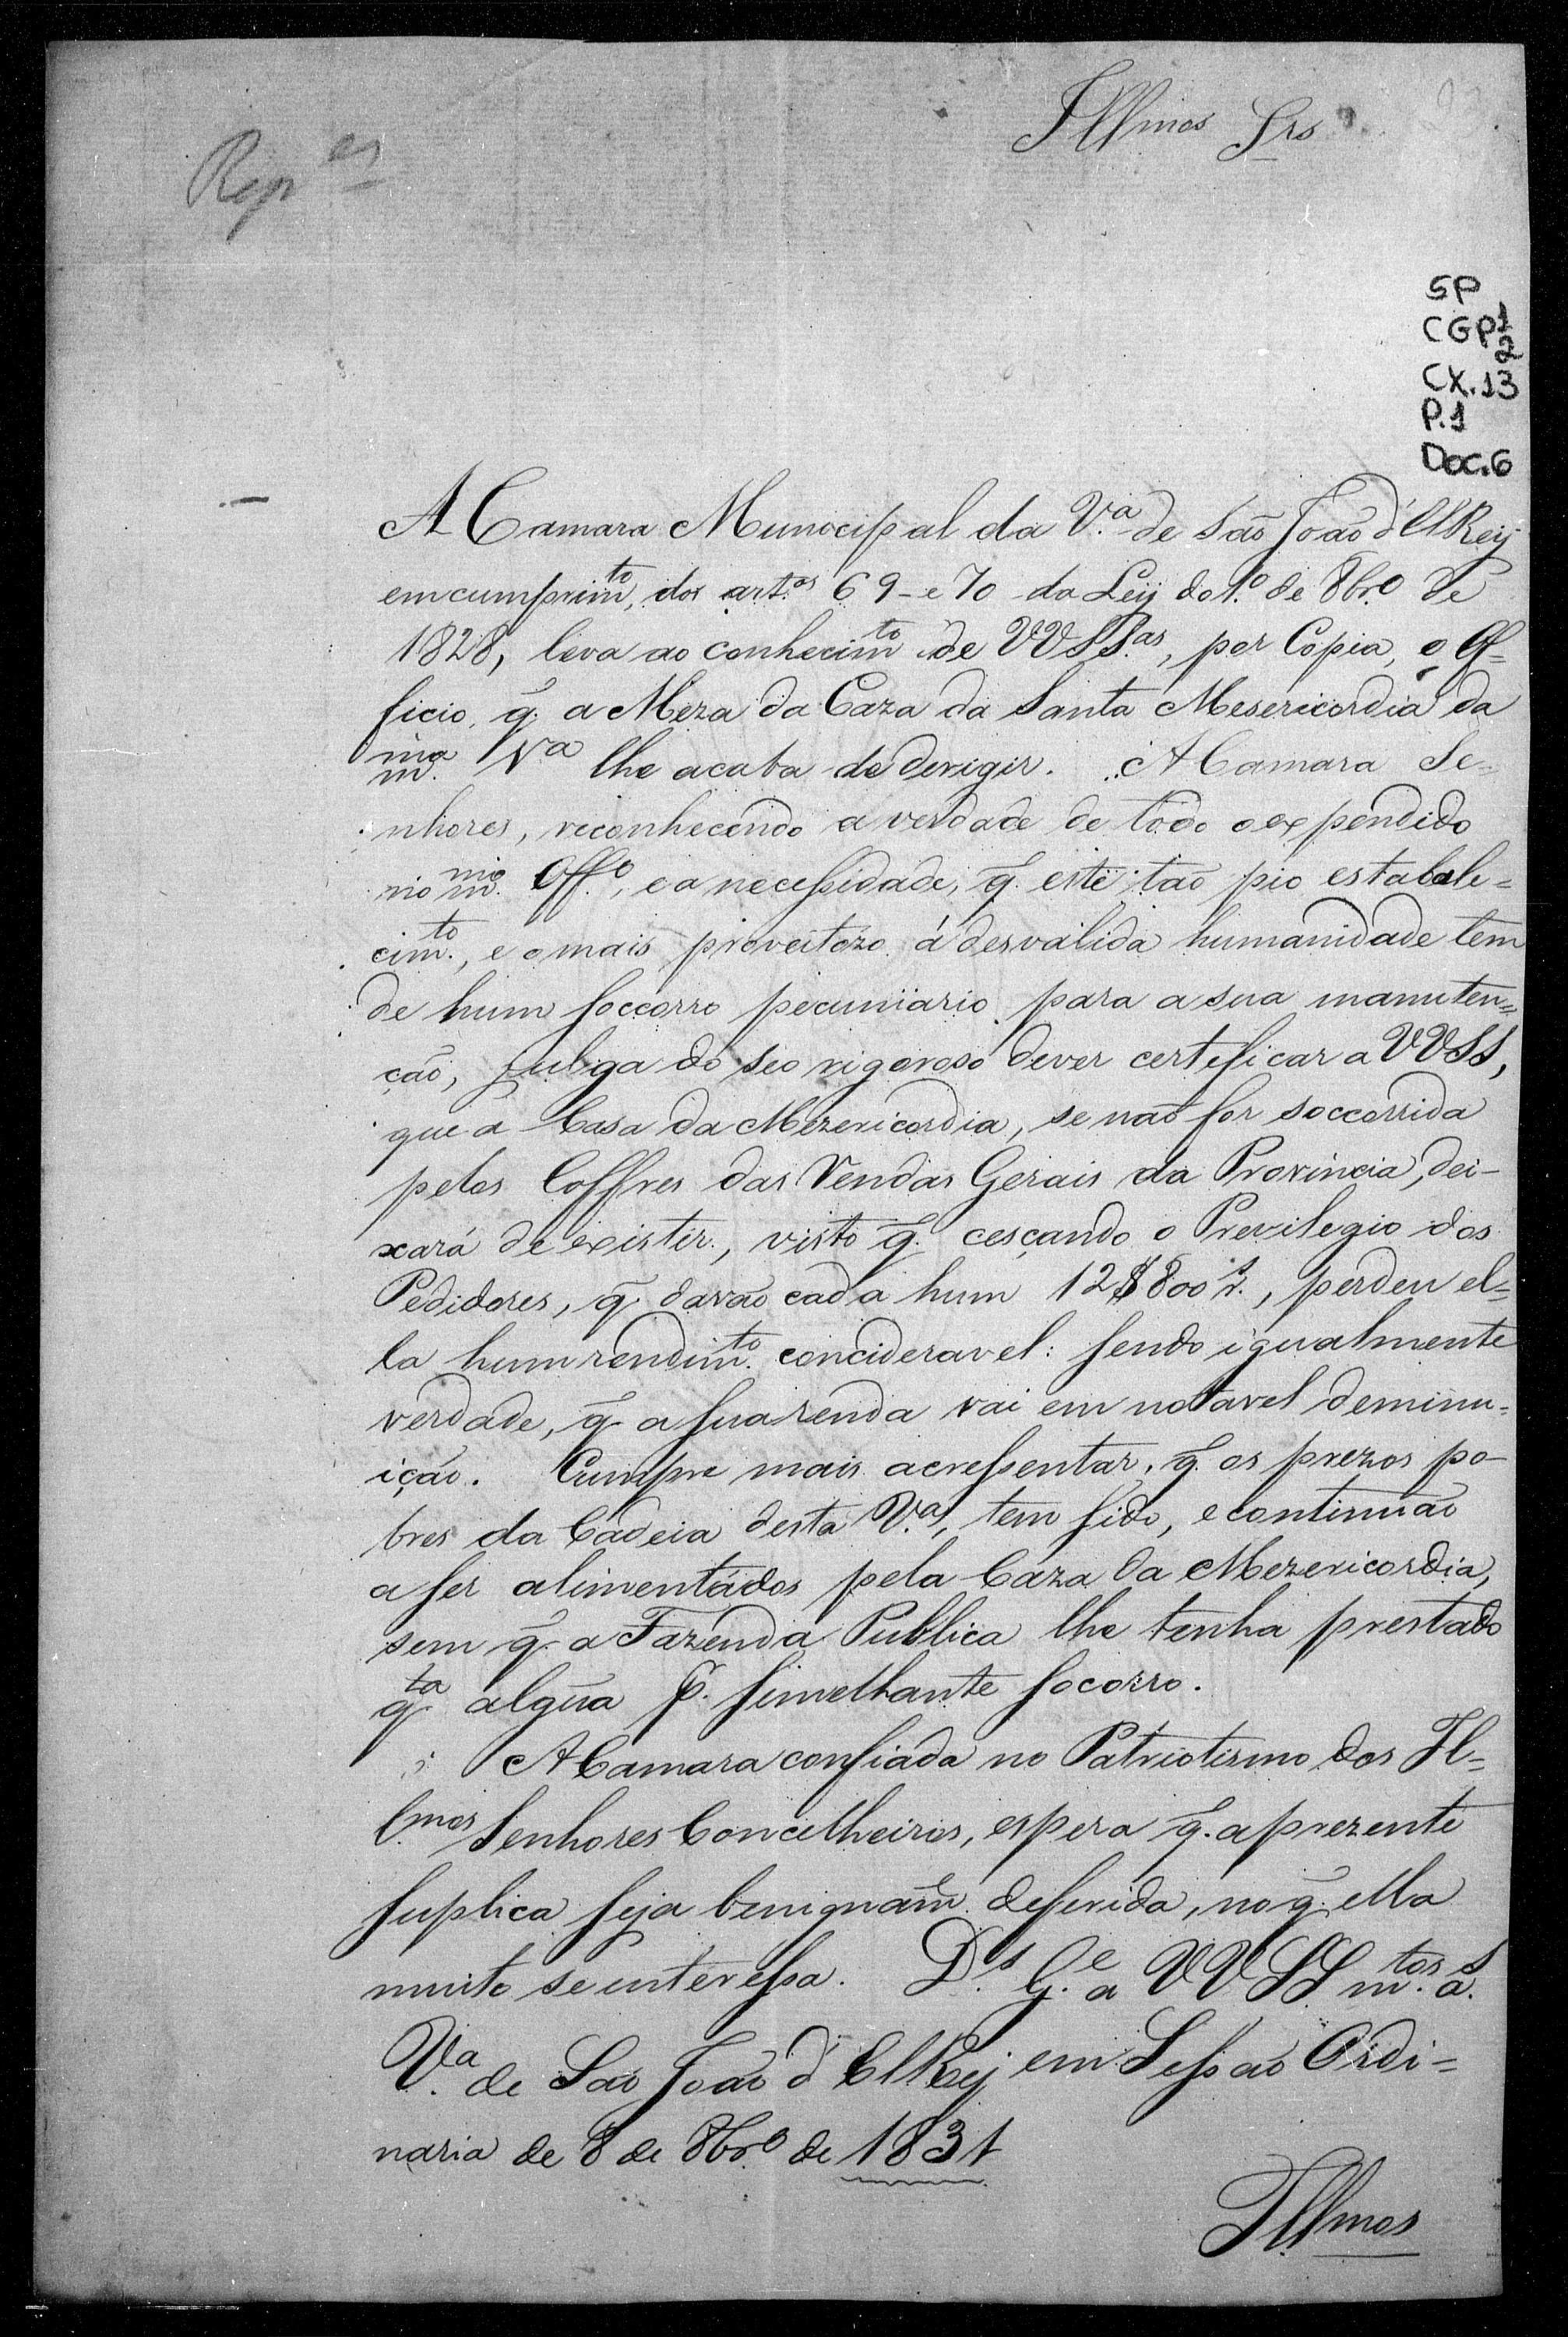 Illmos Srs
Rep.es
SP
CGP 1
2
CX.13
P.1
Doc.6
A Camara Municipal da V.a de São João d'ElRey
em cumprim.to dos art.os 69 e 70 da Ley do 1.o de 8br.o de
1828, leva ao conhecim.to de VVSS.as, por Copia, o Of-
ficio, q̃. a Meza da Caza da Santa Mesericordia da
m.ma V.a lhe acaba de derigir. A Camara Se-
nhores, reconhecendo a verdade de todo o expendido
no m.mo Off.o, e a necessidade, q̃. este tão pio estabele-
cim.to, e o mais proveitozo á desvalida humanidade tem
de hum soccorro pecuniario para a sua manuten-
ção, julga do seo rigoroso dever certeficar a VVSS,
que a Casa da Mezericordia, se não for soccorrida
pelos Coffres das Rendas Gerais da Provincia, dei-
xará de existir, visto q̃. cesçando o Previlegio dos
Pedidores, q̃. davão cada hum 12$800 r.s, perdeu el-
la hum rendim.to concideravel: sendo igualmente
verdade, q̃. a sua renda vai em notavel deminu-
ição. Cumpre mais acressentar, q̃. os prezos po-
bres da Cadeia desta V.a, tem sido, e continuão
a ser alimentádos pela Caza da Mezericordia,
sem q̃. a Fazenda Publica lhe tenha prestado
q.ta algũa p. simelhante socorro.
A Camara confiada no Patriotismo dos Il-
l.mos Senhores Concelheiros, espera q̃. a prezente
suplica seja benignam.e deferida, no q̃. ella
muito se interessa. D.s G.e a VVSS m.tos a.s
V.a de São João d'ElRey em Sessão Ordi-
naria de 8 de 8br.o de 1831
Illmos